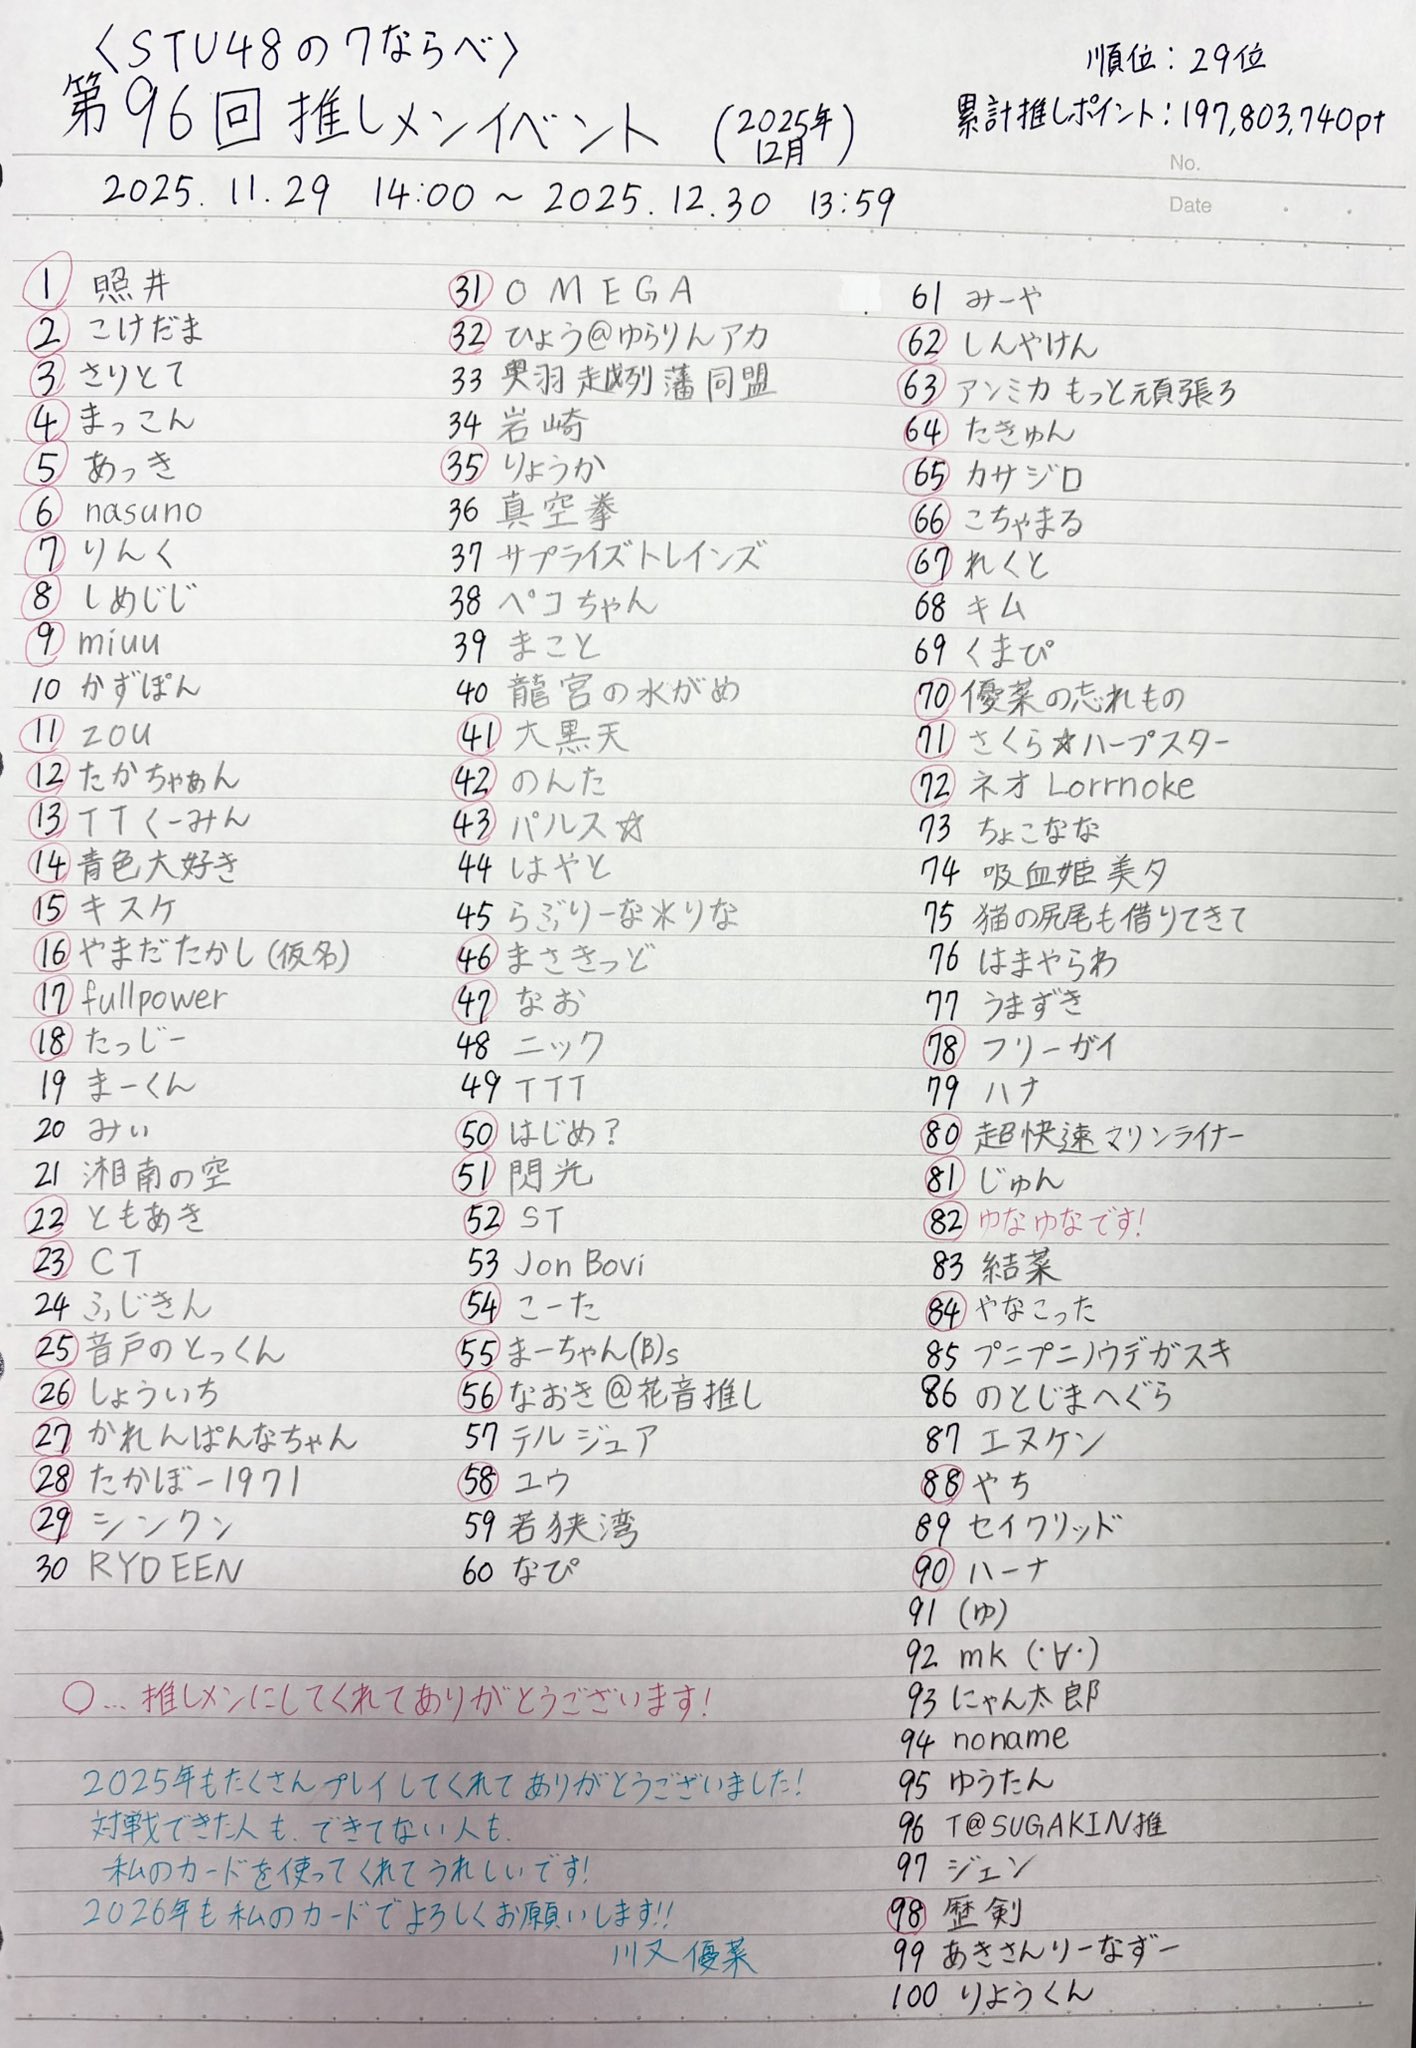 〈STU48の7ならべ〉
第96回 推しメンイベント (2025年12月)
順位：29位
累計推しポイント：197,803,740pt
No.
Date
2025.11.29 14:00 ~ 2025.12.30 13:59
1 照井
2 こけだま
3 さりとて
4 まっこん
5 あっき
6 nasuno
7 りんく
8 しめじじ
9 miuu
10 かずぽん
11 zou
12 たかちゃぁん
13 TTくーみん
14 青色大好き
15 キスケ
16 やまだたかし(仮名)
17 fullpower
18 たっじー
19 まーくん
20 みぃ
21 湘南の空
22 ともあき
23 CT
24 ふじきん
25 音戸のとっくん
26 しょういち
27 かれんぱんなちゃん
28 たかぼー1971
29 シンクン
30 RYDEEN
31 OMEGA
32 ひょう@ゆらりんアカ
33 奥羽越列藩同盟
34 岩崎
35 りょうか
36 真空拳
37 サプライズトレインズ
38 ペコちゃん
39 まこと
40 龍宮の水がめ
41 大黒天
42 のんた
43 パルス☆
44 はやと
45 らぶりーな米りな
46 まさきっど
47 なお
48 ニック
49 TTT
50 はじめ?
51 閃光
52 ST
53 Jon Bovi
54 こーた
55 まーちゃん(B)s
56 なおき@花音推し
57 テルジュア
58 ユウ
59 若狭湾
60 なぴ
61 みーや
62 しんやけん
63 アンミカもっと頑張ろ
64 たきゅん
65 カサジロ
66 こちゃまる
67 れくと
68 キム
69 くまぴ
70 優菜の忘れもの
71 さくら☆ハープスター
72 ネオ Lorrnoke
73 ちょこなな
74 吸血姫美夕
75 猫の尻尾も借りてきて
76 はまやらわ
77 うまずき
78 フリーガイ
79 ハナ
80 超快速マリンライナー
81 じゅん
82 ゆなゆなです!
83 結菜
84 やなこった
85 プニプニノウデガスキ
86 のとじまへぐら
87 エヌケン
88 やち
89 セイクリッド
90 ハーナ
91 (ゆ)
92 mk (・∀・)
93 にゃん太郎
94 noname
95 ゆうたん
96 T@SUGAKIN推
97 ジェン
98 歴剣
99 あきさんりーなずー
100 りようくん
○…推しメンにしてくれてありがとうございます!
2025年もたくさんプレイしてくれてありがとうございました!
対戦できた人も、できてない人も、
私のカードを使ってくれてうれしいです!
2026年も私のカードでよろしくお願いします!!
川又優菜